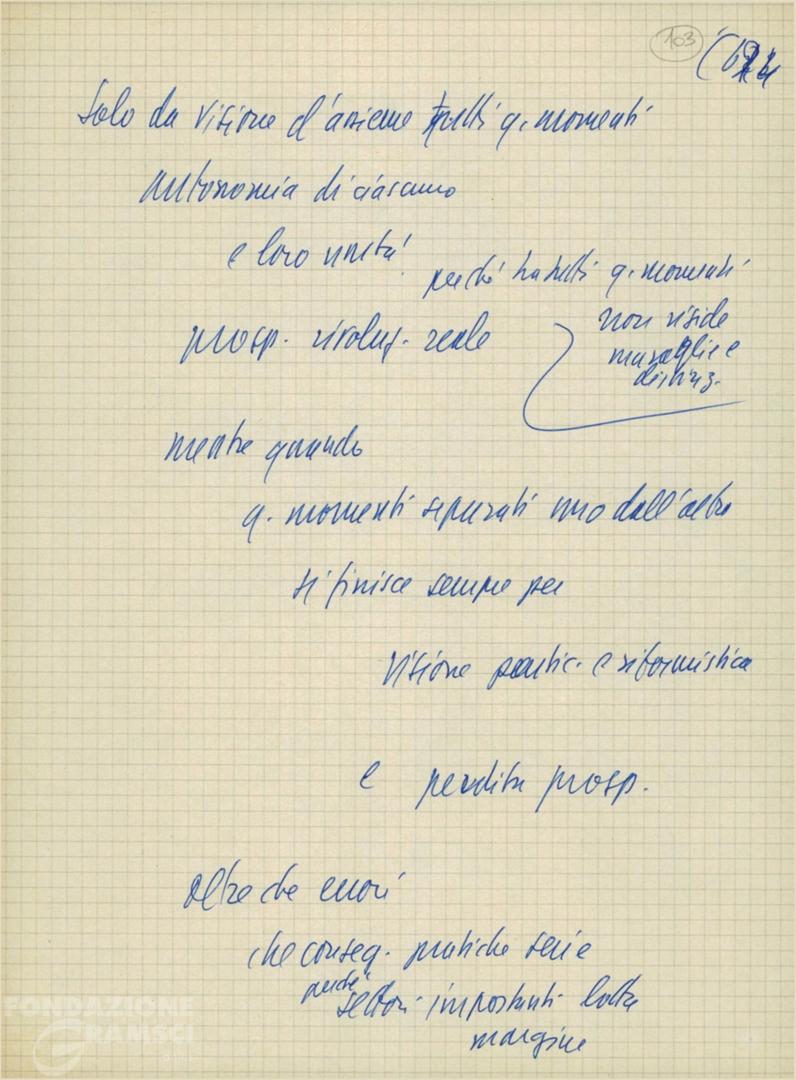 103
Solo da visione d'assieme tutti q. momenti
autonomia di ciascuno
e loro unità
perché tra tutti q. momenti
non viside
muraglie e
prosp. rivoluz. reale
mentre quando
q. momenti separati uno dall'altro
si finisce sempre per
visione e riformistica
e perdita prosp.
oltre che errori
che conseg. pratiche serie
perché
settori importanti lotta
margine
FONDAZIONE
GRAMSCI